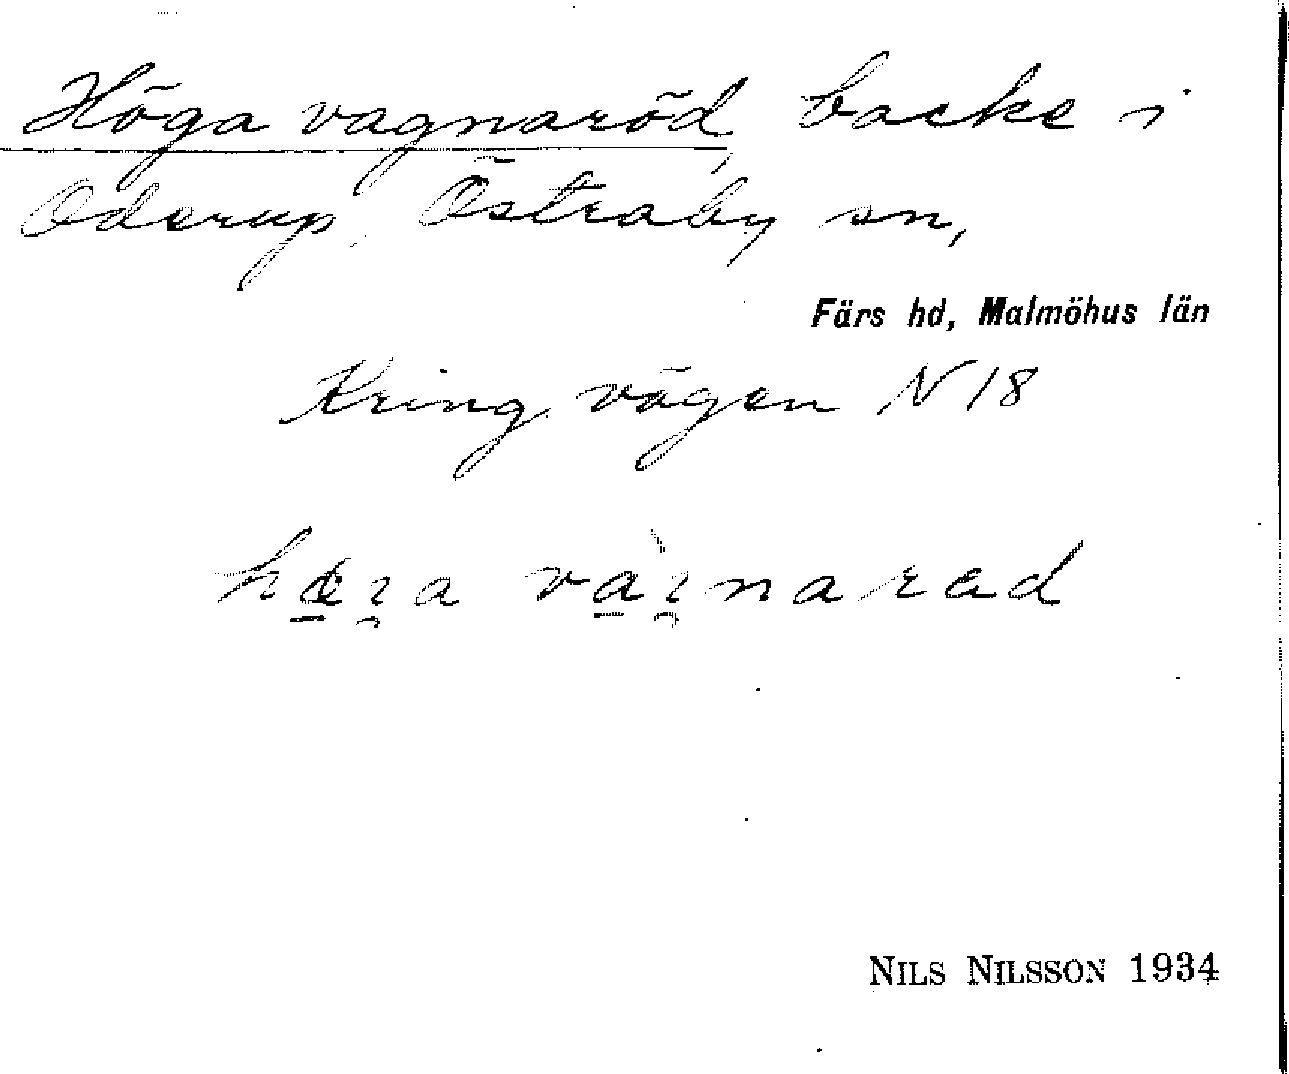 Höga vagnaröd, backe i
Oderup, Östraby sn,
Färs hd, Malmöhus län
Kring vägen N 18
NILS NILSSON 1934